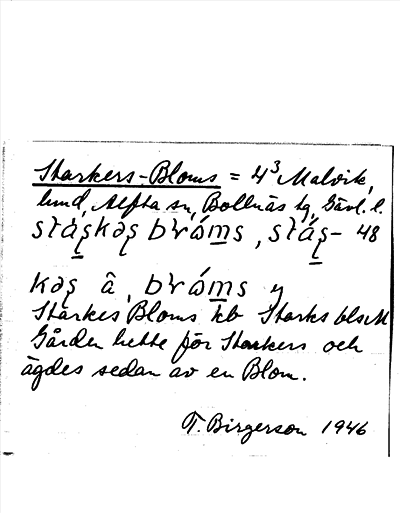 Starkers-Bloms = 4³ Malvik,
lund, Alfta sn, Bollnäs tg, Gävl. l.
48
â, y
Starkes Bloms kb Starks blsM
Gården hette för Starkers och
ägdes sedan av en Blom.
T. Birgerson 1946